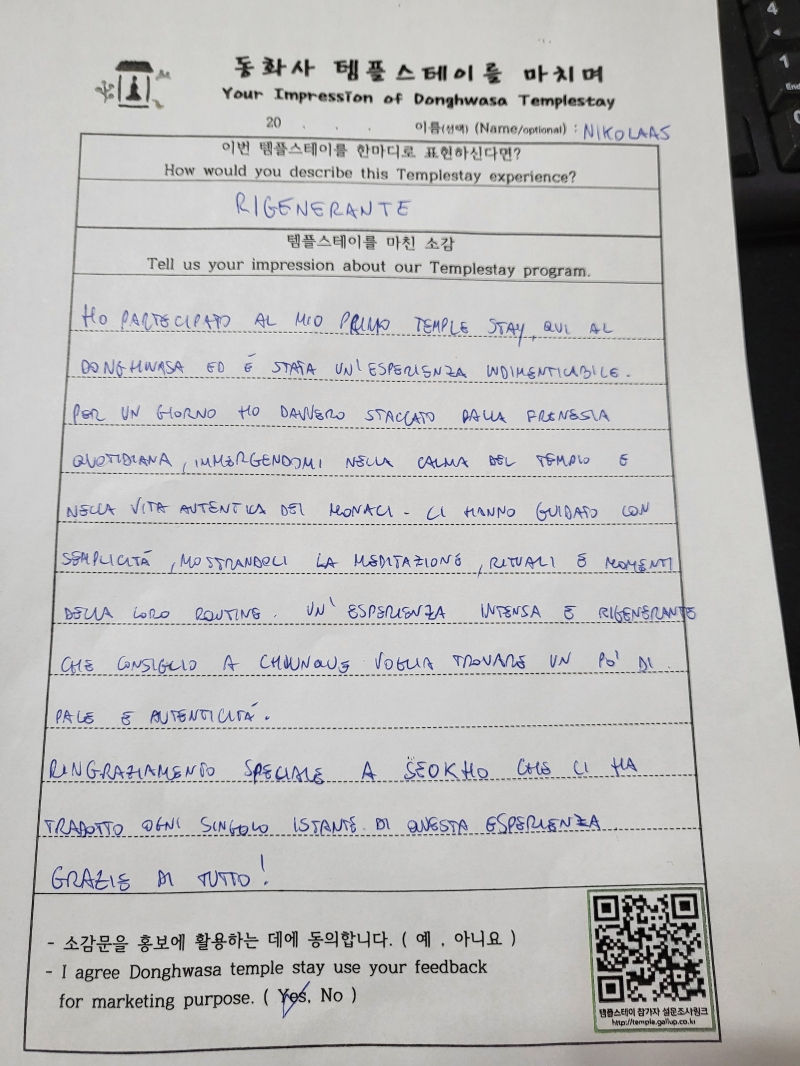 동화사 템플스테이를 마치며
Your Impression of Donghwasa Templestay
20 . . . 이름(선택) (Name/optional) : NIKOLAAS
이번 템플스테이를 한마디로 표현하신다면?
How would you describe this Templestay experience?
RIGENERANTE
템플스테이를 마친 소감
Tell us your impression about our Templestay program.
HO PARTECIPATO AL MIO PRIMO TEMPLE STAY, QUI AL
DONGHWASA ED É STATA UN'ESPERIENZA INDIMENTICABILE.
PER UN GIORNO HO DAVVERO STACCATO DALLA FRENESIA
QUOTIDIANA, IMMERGENDOMI NELLA CALMA DEL TEMPIO E
NELLA VITA AUTENTICA DEI MONACI - CI HANNO GUIDATO CON
SEMPLICITÁ, MOSTRANDOCI LA MEDITAZIONE, RITUALI E MOMENTI
DELLA LORO ROUTINE. UN'ESPERIENZA INTENSA E RIGENERANTE
CHE CONSIGLIO A CHIUNQUE VOGLIA TROVARE UN PO' DI
PACE E AUTENTICITÁ.
RINGRAZIAMENTO SPECIALE A SEOKHO CHE CI HA
TRADOTTO OGNI SINGOLO ISTANTE DI QUESTA ESPERIENZA
GRAZIE DI TUTTO!
- 소감문을 홍보에 활용하는 데에 동의합니다. ( 예 , 아니요 )
- I agree Donghwasa temple stay use your feedback
for marketing purpose. ( Yes, No )
템플스테이 참가자 설문조사링크
http://temple.gallup.co.kr
4
1
End
0